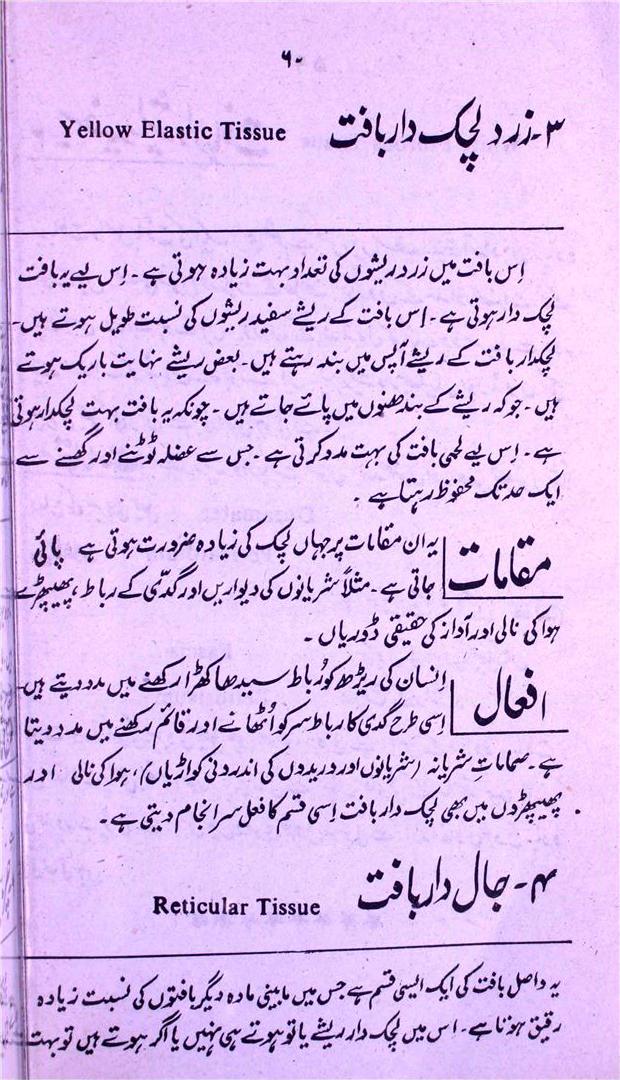 ۶۰
۳- زرد لچک دار بافت Yellow Elastic Tissue
اِس بافت میں زرد ریشوں کی تعداد بہت زیادہ ہوتی ہے۔ اِس لیے یہ بافت
لچک دار ہوتی ہے۔ اِس بافت کے ریشے سفید ریشوں کی نسبت طویل ہوتے ہیں۔
لچکدار بافت کے ریشے آپس میں بند رہتے ہیں۔ بعض ریشے نہایت باریک ہوتے
ہیں۔ جو کہ ریشے کے بندھنوں میں پائے جاتے ہیں۔ چونکہ یہ بافت بہت لچکدار ہوتی
ہے۔ اِس لیے لحمی بافت کی بہت مدد کرتی ہے۔ جس سے عضلہ ٹوٹنے اور گھسنے سے
ایک حد تک محفوظ رہتا ہے۔
مقامات یہ ان مقامات پر جہاں لچک کی زیادہ ضرورت ہوتی ہے پائی
جاتی ہے۔ مثلاً شریانوں کی دیواریں اور گدّی کے رباط، پھیپھڑے
ہوا کی نالی اور آواز کی حقیقی ڈوریاں۔
افعال اِنسان کی ریڑھ کو رُباط سیدھا کھڑا رکھنے میں مدد دیتے ہیں۔
اِسی طرح گدی کا رباط سر کو اُٹھانے اور قائم رکھنے میں مدد دیتا
ہے۔ صماماتِ شریانہ (شریانوں اور وریدوں کی اندرونی کواڑیاں)، ہوا کی نالی اور
پھیپھڑوں میں بھی لچک دار بافت اِسی قسم کا فعل سرانجام دیتی ہے۔
۴- جال دار بافت Reticular Tissue
یہ واصل بافت کی ایک ایسی قسم ہے جس میں مابینی مادہ دیگر بافتوں کی نسبت زیادہ
رقیق ہوتا ہے۔ اس میں لچک دار ریشے یا تو ہوتے ہی نہیں یا اگر ہوتے ہیں تو بہت